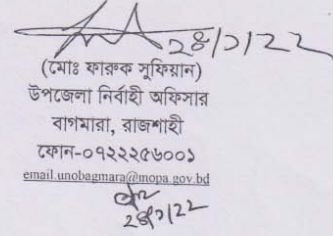 ২৪/১/২২
(মোঃ ফারুক সুফিয়ান)
উপজেলা নির্বাহী অফিসার
বাগমারা, রাজশাহী
ফোন-০৭২২২৫৬০০১
email.unobagmara@mopa.gov.bd
২৪/১/২২